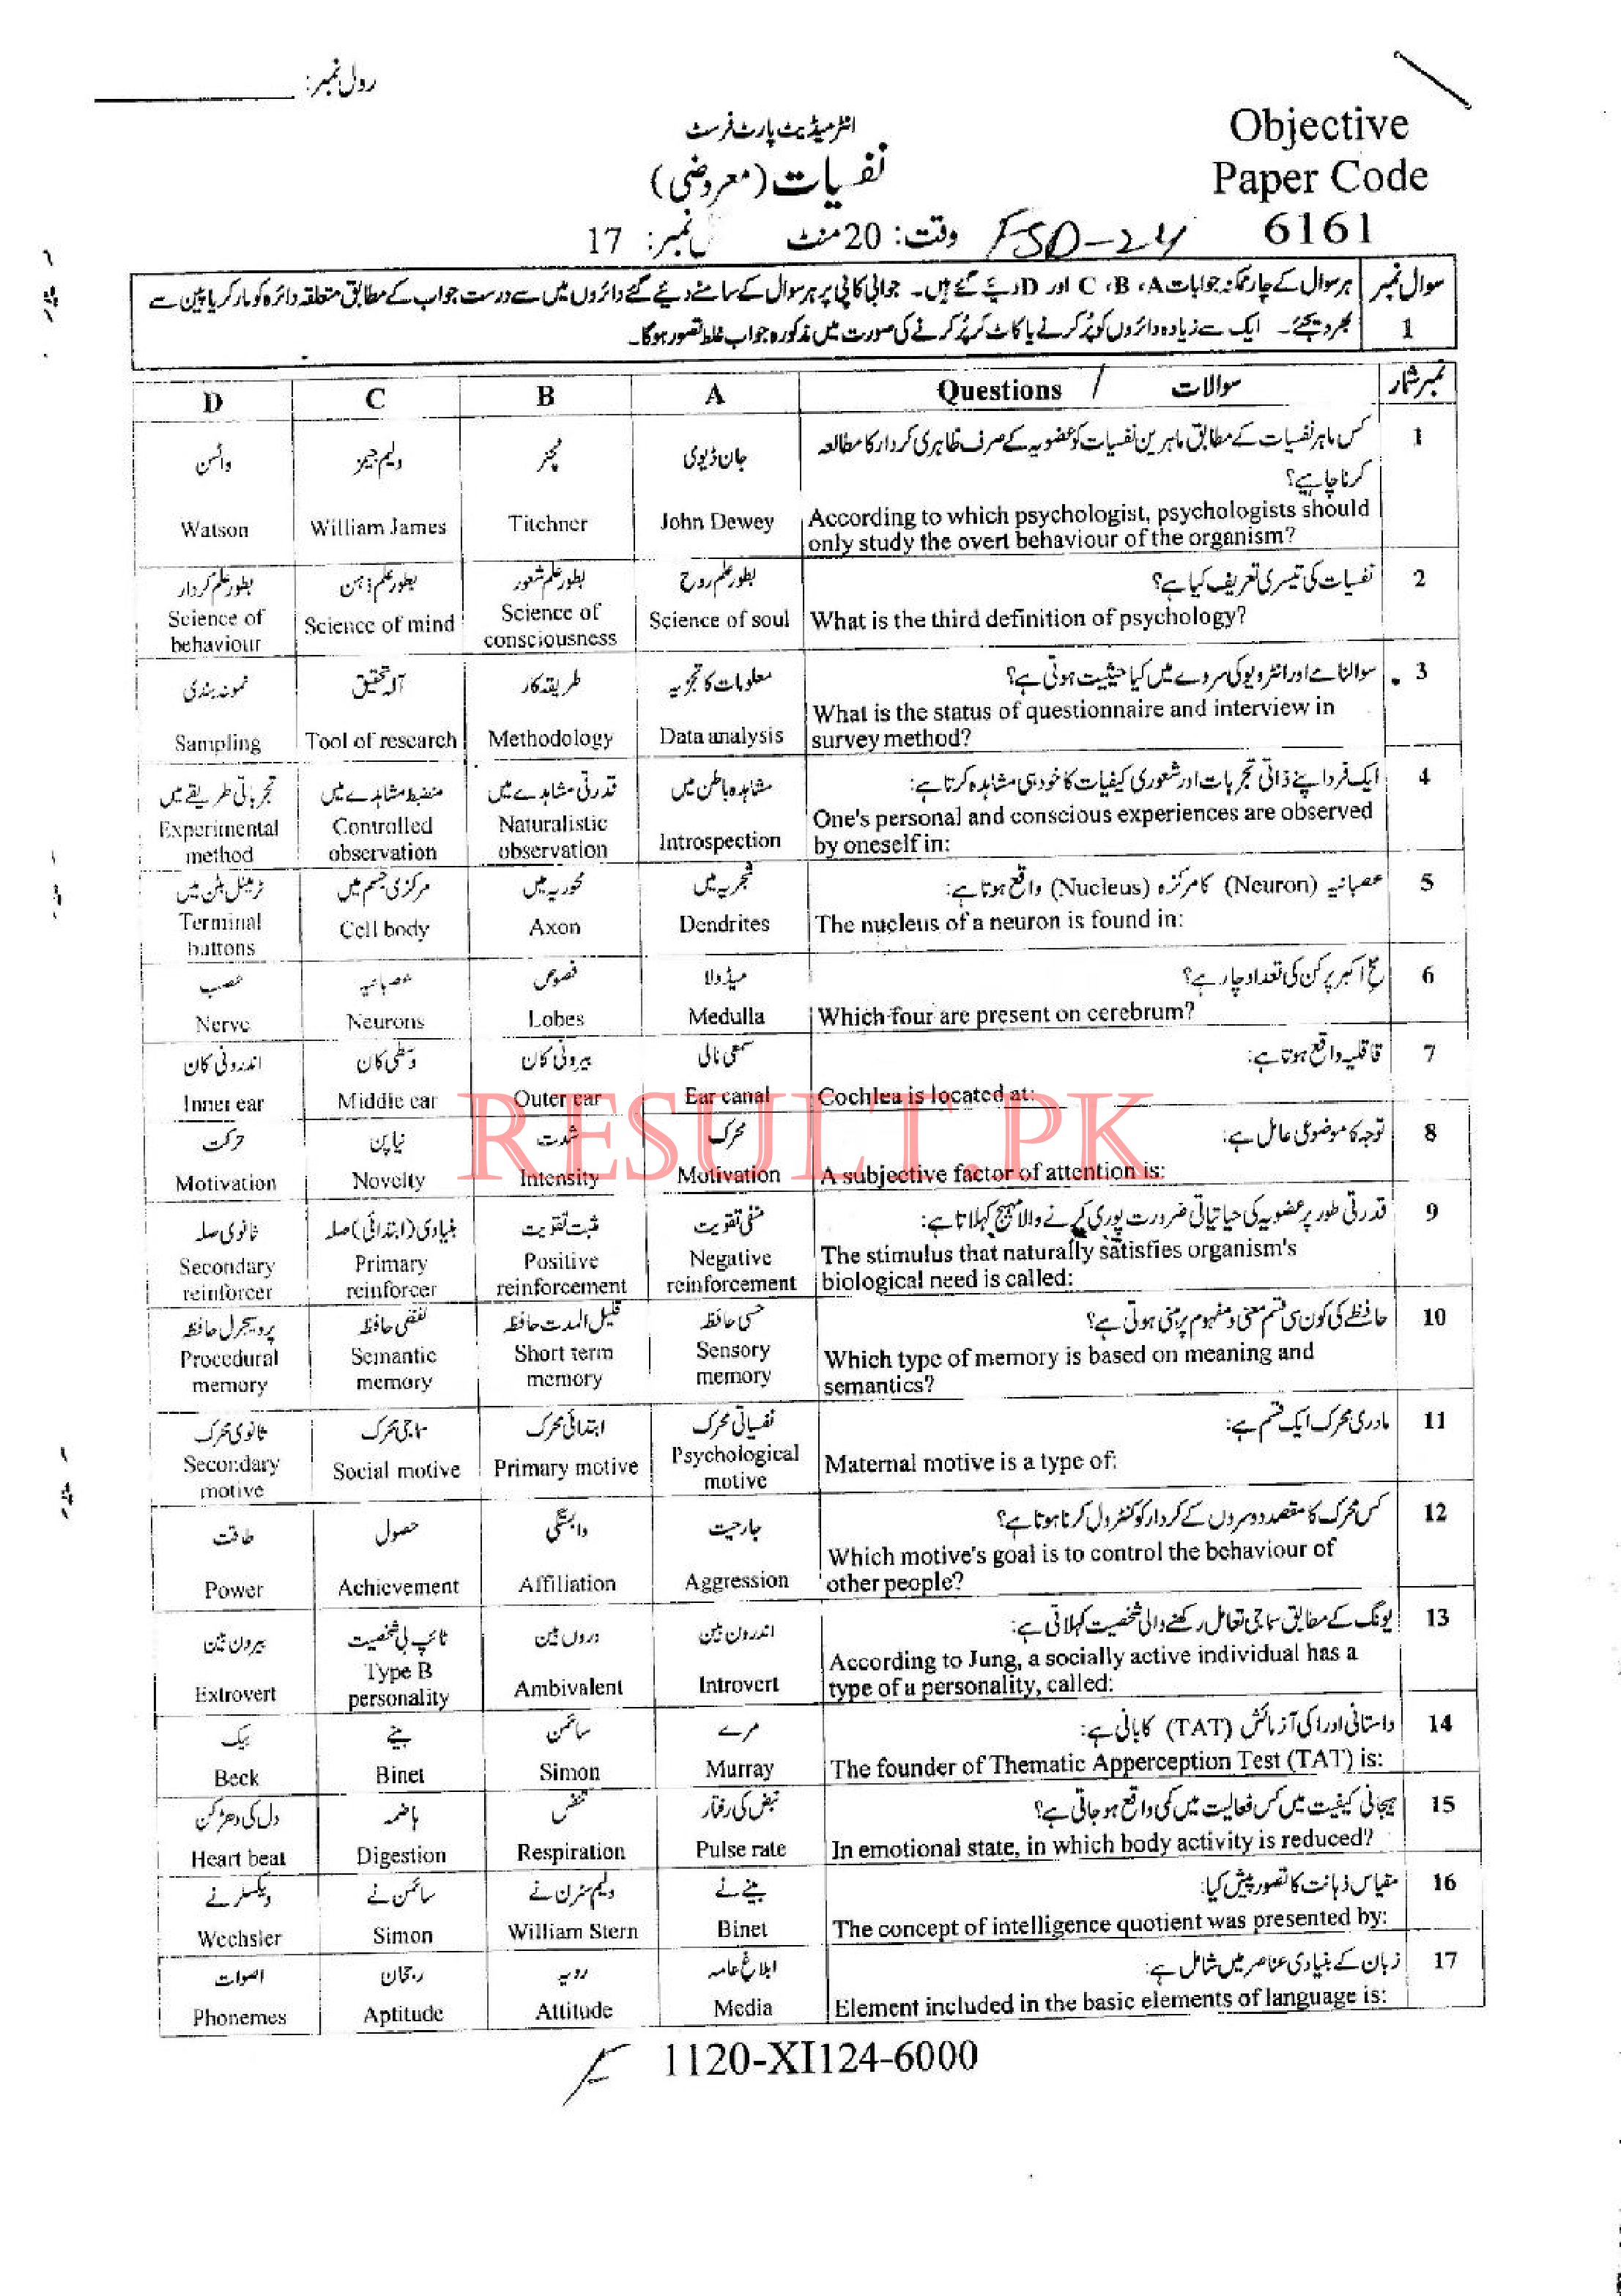 رول نمبر:
انٹرمیڈیٹ پارٹ فرسٹ
نفسیات (معروضی)
Objective
Paper Code
6161
وقت: 20 منٹ
نمبر: 17
FSD-24
سوال نمبر 1
ہر سوال کے چار ممکنہ جوابات A، B، C اور D دیئے گئے ہیں۔ جوابی کاپی پر ہر سوال کے سامنے دیئے گئے دائروں میں سے درست جواب کے مطابق متعلقہ دائرہ کو مارکر یا پین سے
بھر دیجئے۔ ایک سے زیادہ دائروں کو پُر کرنے یا کاٹ کر پُر کرنے کی صورت میں مذکورہ جواب غلط تصور ہوگا۔
D C B A Questions / سوالات نمبر شمار
1 کس ماہر نفسیات کے مطابق ماہرین نفسیات کو عضویہ کے صرف ظاہری کردار کا مطالعہ
کرنا چاہیے؟
واٹسن ولیم جیمز ٹچنر جان ڈیوی
According to which psychologist, psychologists should
only study the overt behaviour of the organism?
Watson William James Titchner John Dewey
2 نفسیات کی تیسری تعریف کیا ہے؟
بطور علم کردار بطور علم ذہن بطور علم شعور بطور علم روح
What is the third definition of psychology?
Science of behaviour Science of mind Science of consciousness Science of soul
3 سوالنامے اور انٹرویو کی سروے میں کیا حیثیت ہوتی ہے؟
نمونہ بندی آلہ تحقیق طریقہ کار معلومات کا تجزیہ
What is the status of questionnaire and interview in
survey method?
Sampling Tool of research Methodology Data analysis
4 ایک فرد اپنے ذاتی تجربات اور شعوری کیفیات کا خود ہی مشاہدہ کرتا ہے:
تجرباتی طریقے میں منضبط مشاہدے میں قدرتی مشاہدے میں مشاہدہ باطن میں
One's personal and conscious experiences are observed
by oneself in:
Experimental method Controlled observation Naturalistic observation Introspection
5 عصبانیہ (Neuron) کا مرکزہ (Nucleus) واقع ہوتا ہے:
ٹرمینل بٹن میں مرکزی جسم میں محوریہ میں شجریہ میں
The nucleus of a neuron is found in:
Terminal buttons Cell body Axon Dendrites
6 مخ اکبر پر کن کی تعداد چار ہے؟
عصب عصبانیہ فصوص میڈولا
Which four are present on cerebrum?
Nerve Neurons Lobes Medulla
7 قاقلیہ واقع ہوتا ہے:
اندرونی کان وسطی کان بیرونی کان سمعی نالی
Cochlea is located at:
Inner ear Middle ear Outer ear Ear canal
8 توجہ کا موضوعی عامل ہے:
حرکت نیا پن شدت محرک
A subjective factor of attention is:
Motivation Novelty Intensity Motivation
9 قدرتی طور پر عضویہ کی حیاتیاتی ضرورت پوری کرنے والا مہیج کہلاتا ہے:
ثانوی صلہ بنیادی (ابتدائی) صلہ مثبت تقویت منفی تقویت
The stimulus that naturally satisfies organism's
biological need is called:
Secondary reinforcer Primary reinforcer Positive reinforcement Negative reinforcement
10 حافظے کی کون سی قسم معنی و مفہوم پر مبنی ہوتی ہے؟
پروسیجرل حافظہ لفظی حافظہ قلیل المدت حافظہ حسی حافظہ
Which type of memory is based on meaning and
semantics?
Procedural memory Semantic memory Short term memory Sensory memory
11 مادری محرک ایک قسم ہے:
ثانوی محرک سماجی محرک ابتدائی محرک نفسیاتی محرک
Maternal motive is a type of:
Secondary motive Social motive Primary motive Psychological motive
12 کس محرک کا مقصد دوسروں کے کردار کو کنٹرول کرنا ہوتا ہے؟
طاقت حصول وابستگی جارحیت
Which motive's goal is to control the behaviour of
other people?
Power Achievement Affiliation Aggression
13 یونگ کے مطابق سماجی تعامل رکھنے والی شخصیت کہلاتی ہے:
بیرون بین ٹائپ بی شخصیت دروں بین اندرون بین
According to Jung, a socially active individual has a
type of a personality, called:
Extrovert Type B personality Ambivalent Introvert
14 داستانی اوراکی آزمائش (TAT) کا بانی ہے:
بیک بینے سائمن مرے
The founder of Thematic Apperception Test (TAT) is:
Beck Binet Simon Murray
15 ہیجانی کیفیت میں کس فعالیت میں کمی واقع ہو جاتی ہے؟
دل کی دھڑکن ہاضمہ تنفس نبض کی رفتار
In emotional state, in which body activity is reduced?
Heart beat Digestion Respiration Pulse rate
16 مقیاس ذہانت کا تصور پیش کیا:
ویکسلر نے سائمن نے ولیم سٹرن نے بینے نے
The concept of intelligence quotient was presented by:
Wechsler Simon William Stern Binet
17 زبان کے بنیادی عناصر میں شامل ہے:
اصوات رجحان رویہ ابلاغ عامہ
Element included in the basic elements of language is:
Phonemes Aptitude Attitude Media
1120-XI124-6000
RESULT.PK